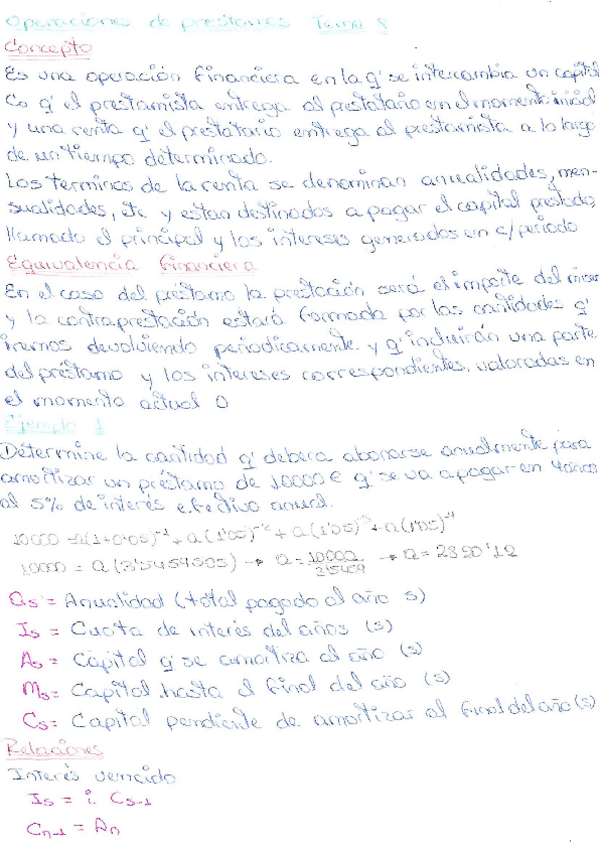 Operaciones de prestamos Tema 8
Concepto
Es una operación financiera en la q' se intercambia un capital
Co q' el prestamista entrega al prestatario en el momento inicial
y una renta q' el prestatario entrega al prestamista a lo largo
de un tiempo determinado.
Los terminos de la renta se denominan anualidades, men-
sualidades, etc y estan destinados a pagar el capital prestado,
llamado el principal y los intereses generados en c/periodo
Equivalencia financiera
En el caso del préstamo la prestación será el importe del mismo
y la contraprestación estará formada por las cantidades q'
iremos devolviendo periodicamente. y q' incluirán una parte
del préstamo y los intereses correspondientes. valoradas en
el momento actual 0
Ejemplo 1
Determine la cantidad q' debera abonarse anualmente para
amortizar un préstamo de 10000€ q' se va a pagar en 4 años
al 5% de interés efectivo anual.
10000 = a(1+0'05)⁻¹ + a(1'05)⁻² + a(1'05)⁻³ + a(1'05)⁻⁴
10000 = a(3'5459505) → a = 10000/3'5459 → a = 2820'12
as = Anualidad (total pagado al año s)
Is = Cuota de interés del años (s)
As = Capital q' se amortiza al año (s)
Ms = Capital hasta el final del año (s)
Cs = Capital pendiente de amortizar al final del año (s)
Relaciones
Interés vencido
Is = i. Cs-1
Cn-1 = An